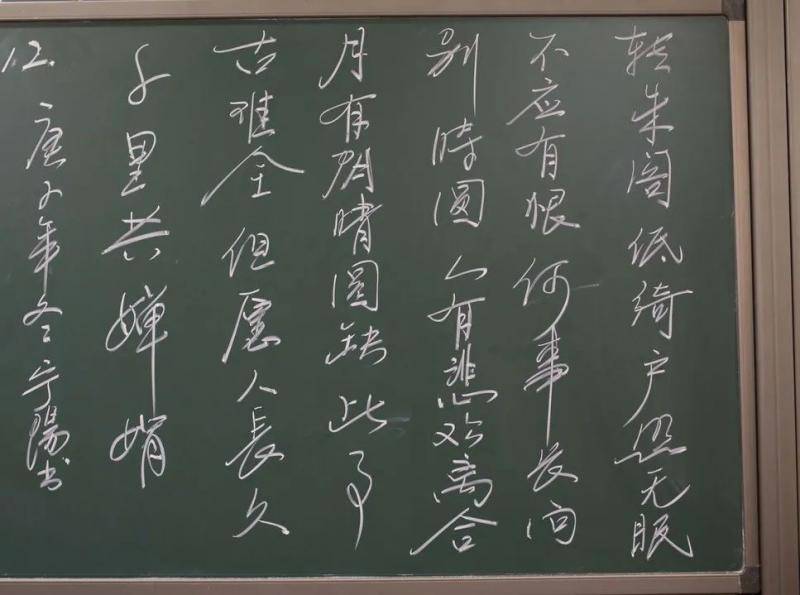 转朱阁低绮户照无眠
不应有恨何事长向
别時圆人有悲欢离合
月有阴晴圆缺此事
古难全但愿人長久
千里共婵娟
庚子年冬宁陽书
12.